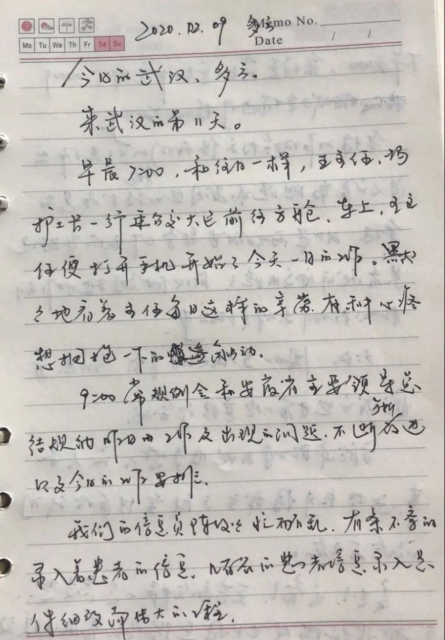 2020.02.09 多云
Memo No.
Mo Tu We Th Fr Sa Su
Date / /
今日的武汉、多云。
来武汉的第11天。
早晨7:00，和往日一样，王主任、冯
护士长一行乘交大巴前往方舱，车上，王主
任便打开手机开始了今天一日的工作。默默
地看着主任每日这样的辛劳，有种心疼
想拥抱一下的冲动。
9:00常规例会和安徽省主要领导总
结归纳昨日的工作及出现的问题，不断改进
以及今日的工作安排。
我们的信息员陈 忙而不乱，有条不紊的
录入着患者的信息，患者信息录入是
件细致而伟大的工程。